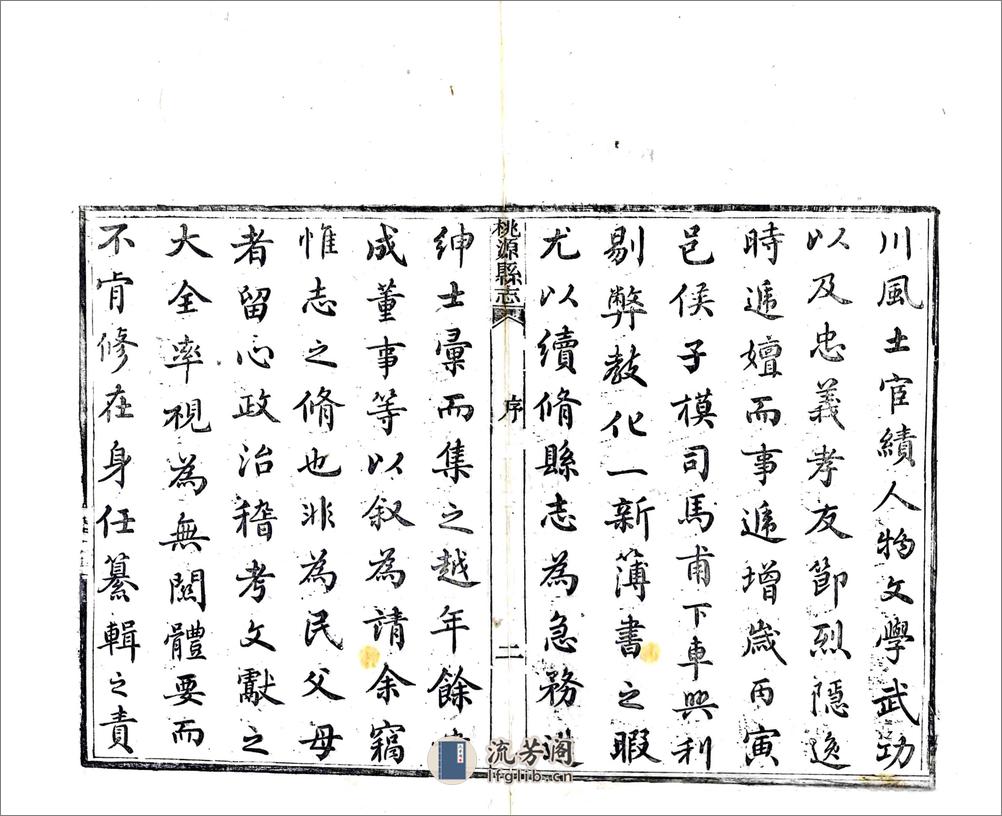 川風土宦績人物文學武功
以及忠義孝友節烈隱逸
時遞嬗而事遞增歲丙寅
邑侯子模司馬甫下車興利
剔弊教化一新簿書之暇
尤以續脩縣志為急務
桃源縣志
序
二
紳士彙而集之越年餘
成董事等以叙為請余竊
惟志之脩也非為民父母
者留心政治稽考文獻之
大全率視為無關體要而
不肯修在身任纂輯之責
流芳閣
lfglib.cn